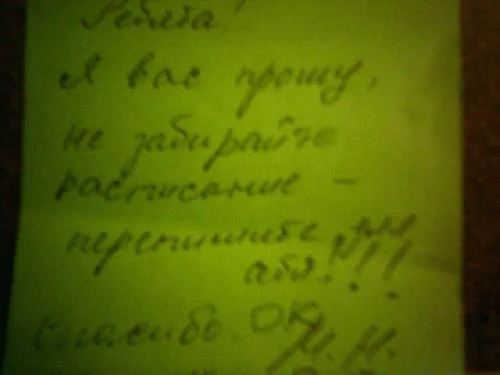 Ребята!
Я вас прошу,
не забирайте
расписание –
перепишите
!!!
спасибо.